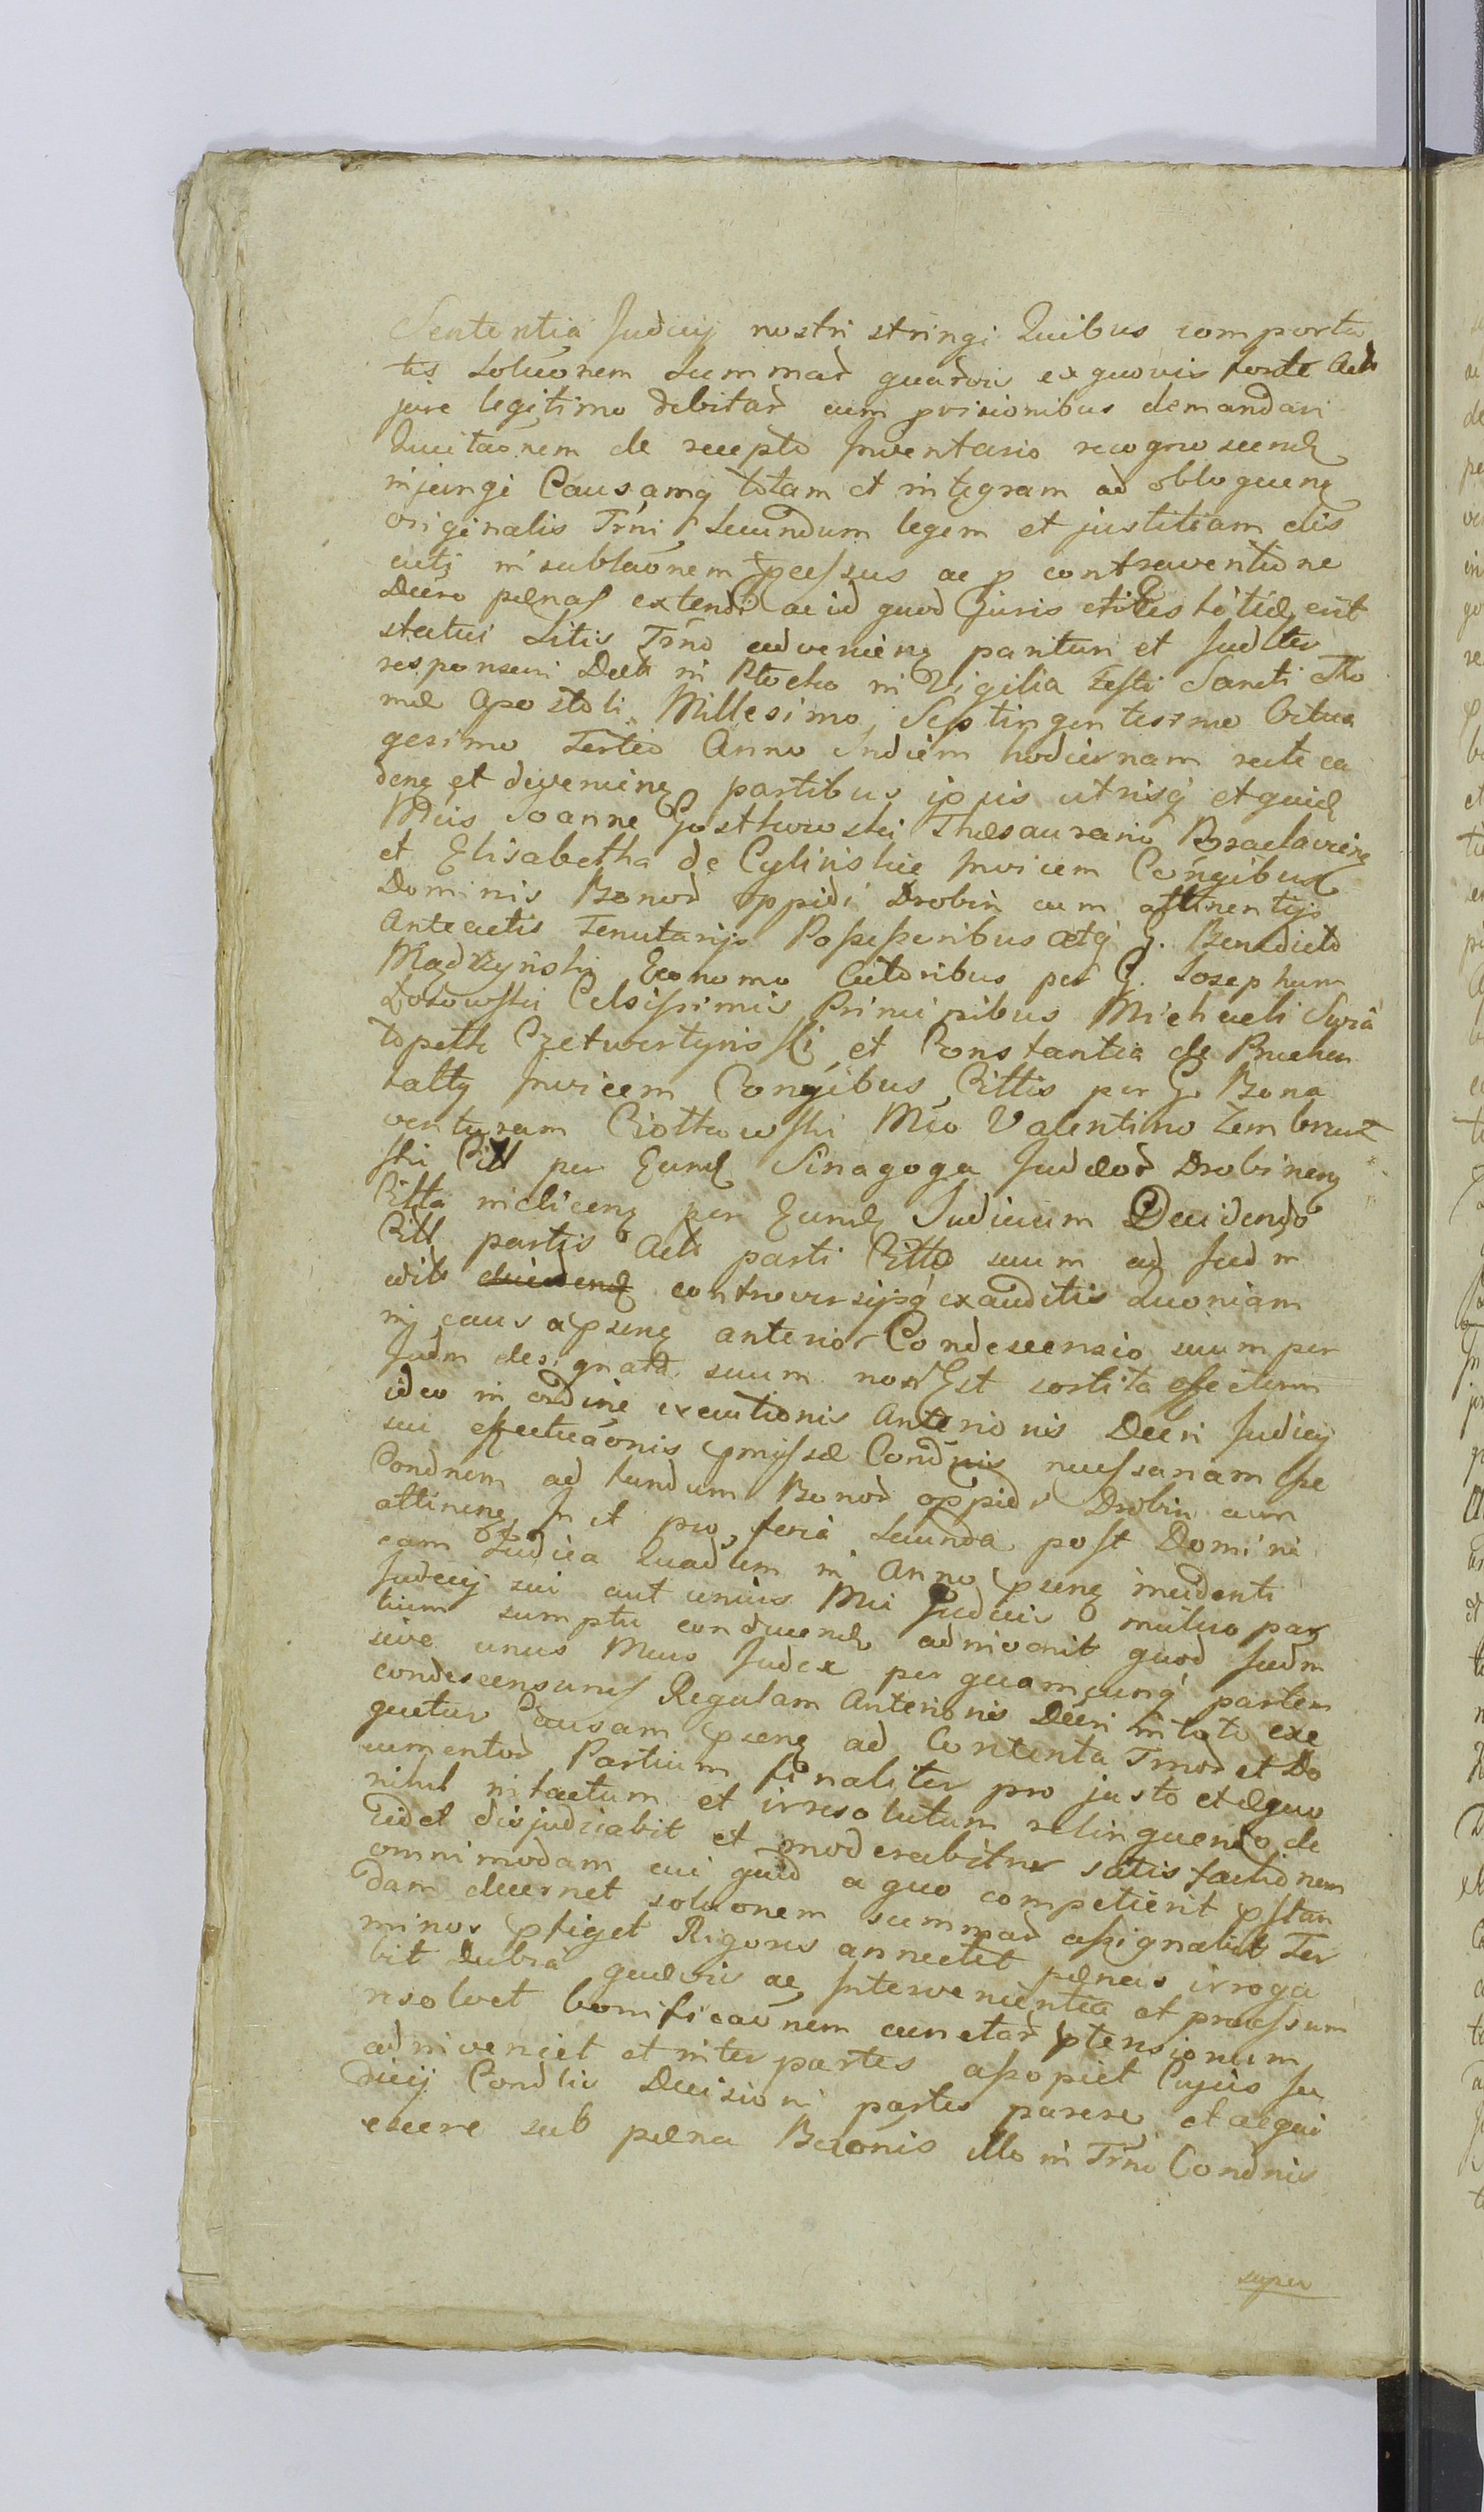 Sententia Judicij nostri stringi Quibus comporta
tis Solūonem Summar̃ quarvis exquovis fonte Act̃
jure legitimo debitar̃ cum provisionibus demandari
Quietāonem de recepto Inventario recognoscend̃
injungi Causamq̃ totam et integram ad obloquenȩ
originalis Trñi Secundum legem et justitiam dis
cuti in sublāonem p̃cessus ac p̃ contraventione
Decro pænas extendi ac id quod Juris et justitiæ erit
statui Litis Trño advenienȩ parituri et Judlter
responsuri Datt in Płocko in Vigilia Festi Sancti Tho
mæ Apostoli Millesimo Septingentesimo Octua
gesimo Tertio Anno Indiem hodiernam recte ca
denȩ et devenienȩ partibus ipsis utrisq̃ et quid̃
Mcis Joanne Gostkowski Thesaurario Braclaviens̃
et Elisabetha de Cyliński Invicem Cōngibus
Dominis Bonor̃ oppidi Drobin cum attinentijs
Anteactis Tenutarijs Possessoribus atq̃ G. Benedicto
Mądrzyński Economo Actoribus per G. Josephum
Łosowski Celsissimis Principibus Michaeli Swia
topełk Czetwertyński et Constantia de Buchen
taltÿ Invicem Conȳibus Cittis per G. Bona
venturam Ciotkowski Mco Valentino Zembrzu
ski Citt per Eund̃ Sinagoga Judæor̃ Drobinenȩ
Citta incliceng per Eund̃ Judicium Decidendo
Citt partis Act̃ parti Cittæ suum ad Judm
edit̃ controversijsq̃ exauditis Quoniam
in causa p̃senȩ anterior Condescensio suum per
Judm designata suum non Est sortita effectum
ideo in ordine executionis Anterioris Decri Judicij
sui effectuāonis p̃missæ Condnis necessariam fse
Condnem ad fundum Bonor̃ oppidi Drobin cum
attinenȩ In et pro feria Secunda post Domini
cam Judica Quadrm in Anno p̃senȩ incidenti
Judicij sui aut unius Mci Judicis mutuo par
tium sumptu conducend̃ adinvenit quod Judm
sive unus Mcus Judex per quamcunq̃ partem
condescensurus Regulam Anterioris Decri in toto exe
quetur Causam p̃senȩ ad Contenta Trnor̃ et Do
cumentor̃ Partium finaliter pro justo et æquo
nihil intactum et irresolutum relinquendo de
cidet disjudicabit et moderabitur satisfactionem
omnimodam cui quid a quo competierit p̃stan
dam decernet solūonem summar̃ assignabit Ter
minos p̃figet Rigores annectet pænas irroga
bit Lubra quævis ac Intervenientia et processum
resolvet bonificāonem cunctar̃ p̃tensionum
adinveniet et inter partes assopiet Cujus Ju
dicij Condlis Decisioni partes parere et acqui
escere sub pæna Bāonis illo in Trno Condnis
super